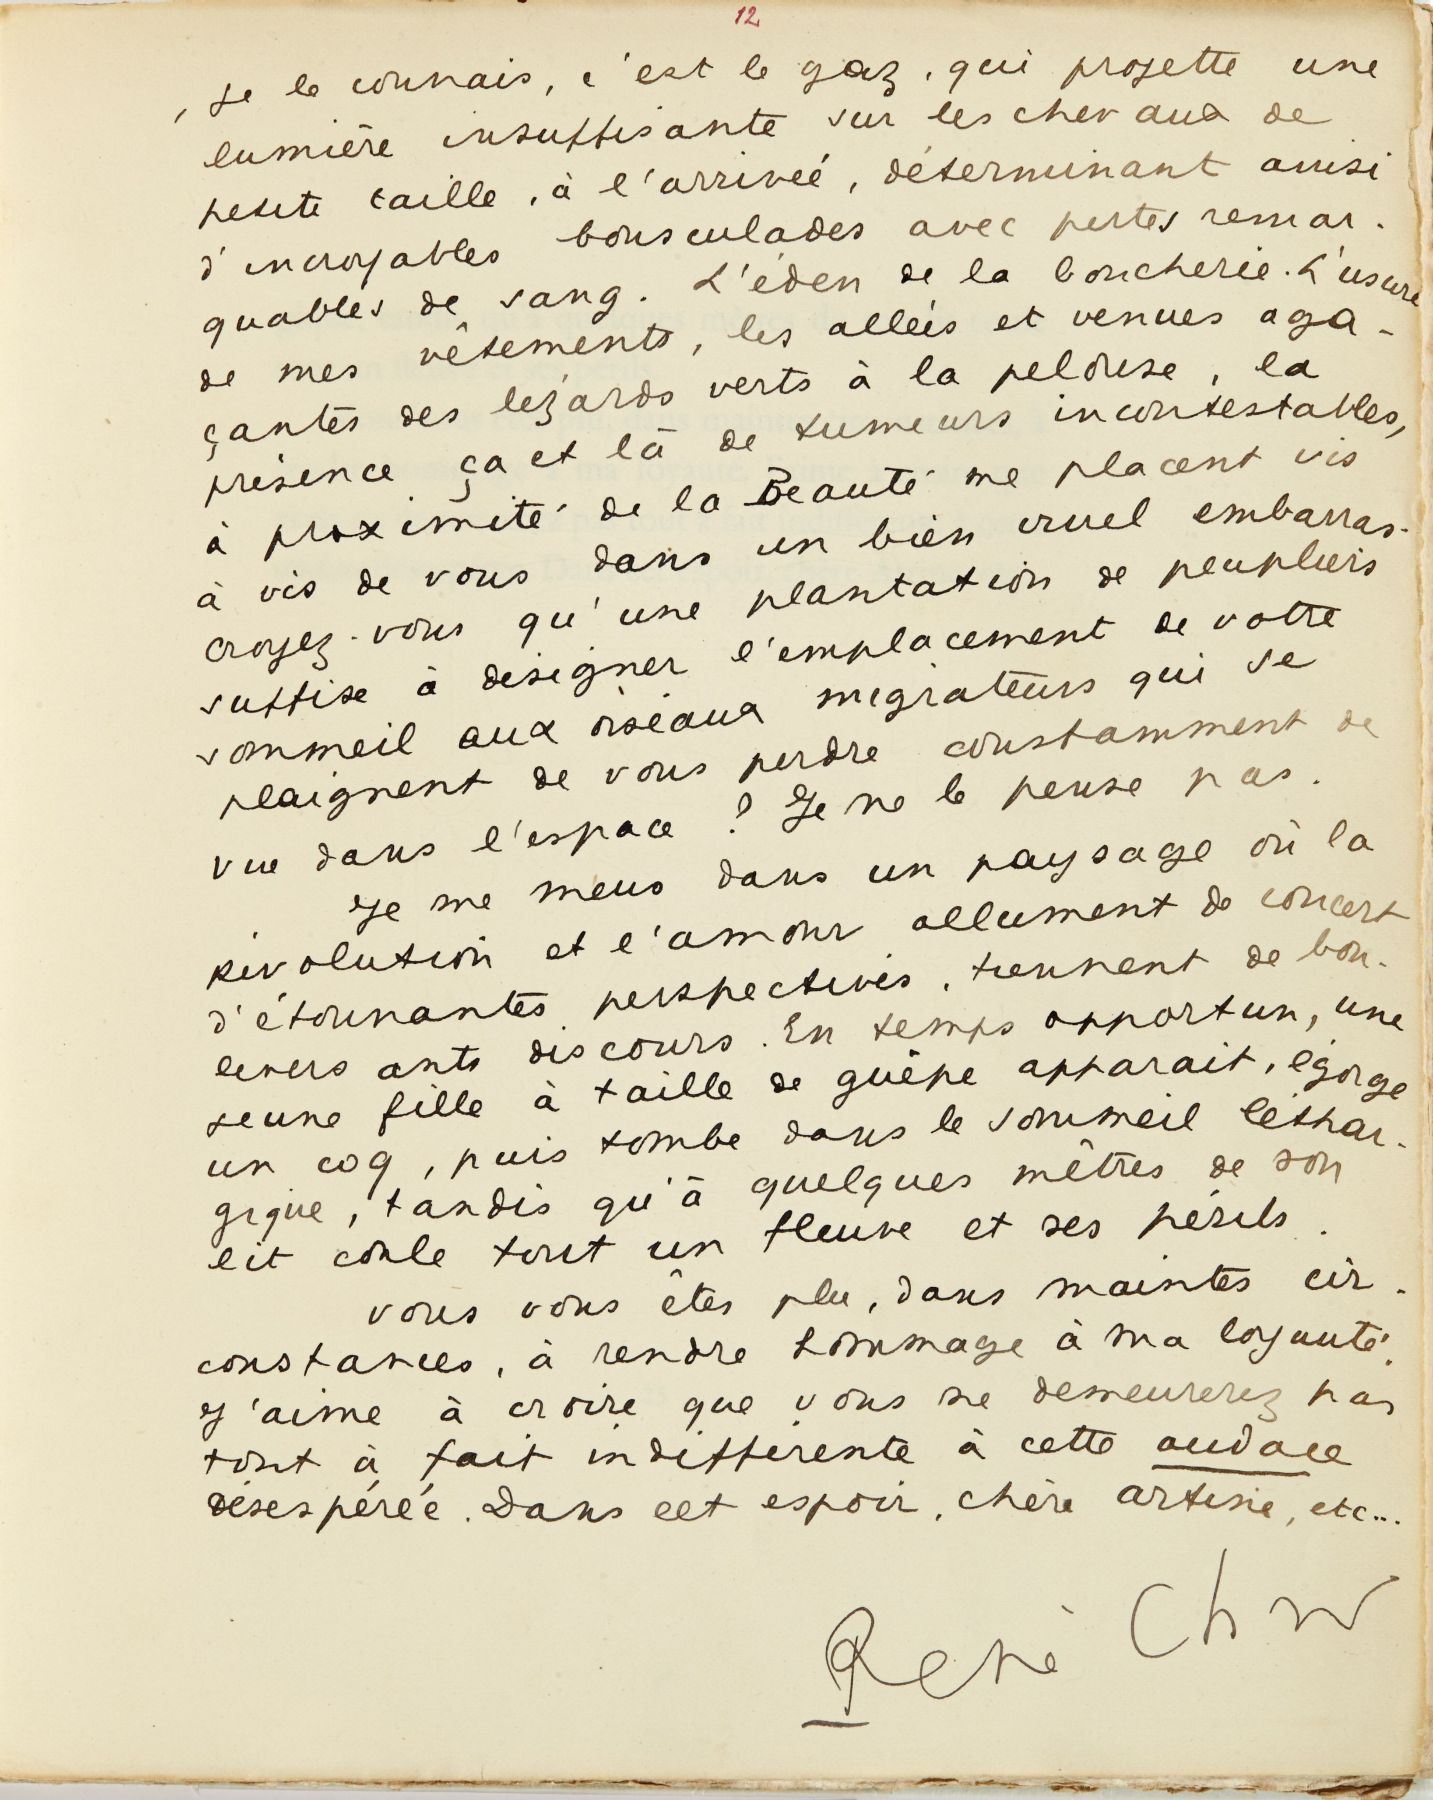 12
je le connais, c'est le gaz, qui projette une
lumière insuffisante sur les chevaux de
petite taille, à l'arrivée, déterminant ainsi
d'incroyables bousculades avec pertes remar-
quables de sang. L'éden de la boucherie. L'usure
de mes vêtements, les allées et venues aga-
çantes des lézards verts à la pelouse, la
présence ça et là de tumeurs incontestables,
à proximité de la Beauté me placent vis
à vis de vous dans un bien cruel embarras.
croyez-vous qu'une plantation de peupliers
suffise à désigner l'emplacement de votre
sommeil aux oiseaux migrateurs qui se
plaignent de vous perdre constamment de
vue dans l'espace ? Je ne le pense pas.
Je me meus dans un paysage où la
Révolution et l'amour allument de concert
d'étonnantes perspectives, tiennent de bou-
leversants discours. En temps opportun, une
jeune fille à taille de guêpe apparait, égorge
un coq, puis tombe dans le sommeil léthar-
gique, tandis qu'à quelques mètres de son
lit coule tout un fleuve et ses périls.
vous vous êtes plu, dans maintes cir-
constances, à rendre hommage à ma loyauté.
J'aime à croire que vous ne demeurerez pas
tout à fait indifférente à cette audace
désespérée. Dans cet espoir, chère artine, etc...
René Char